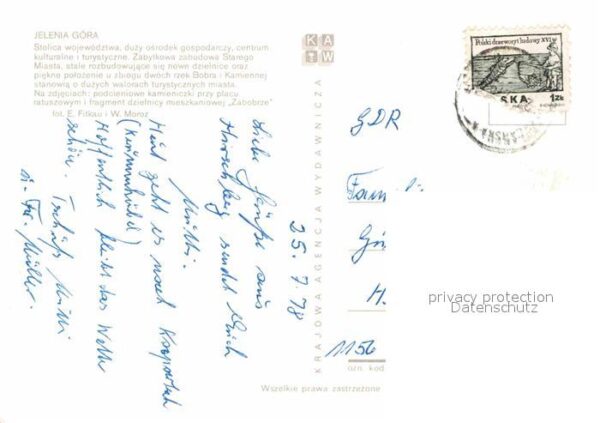 JELENIA GÓRA
Stolica województwa, duży ośrodek gospodarczy, centrum
kulturalne i turystyczne. Zabytkowa zabudowa Starego
Miasta, stale rozbudowujące się nowe dzielnice oraz
piękne położenie u zbiegu dwóch rzek Bobra i Kamiennej
stanowią o dużych walorach turystycznych miasta.
Na zdjęciach: podcieniowe kamieniczki przy placu
ratuszowym i fragment dzielnicy mieszkaniowej „Zabobrze"
fot. E. Fitkau i W. Moroz
KAW
25.7.78
Liebe Grüße aus
Hirschberg sendet Euch
Mutti.
Heut geht es nach Krapatsch
(Krummhübel)
Hoffentlich bleibt das Wetter
schön. Tschüß Mutti
u. Fr. Müller.
KRAJOWA AGENCJA WYDAWNICZA
Polski drzeworyt ludowy XVI
SKA
1zł
GDR
Fam
H.
1156
ozn. kod.
Wszelkie prawa zastrzeżone
privacy protection
Datenschutz